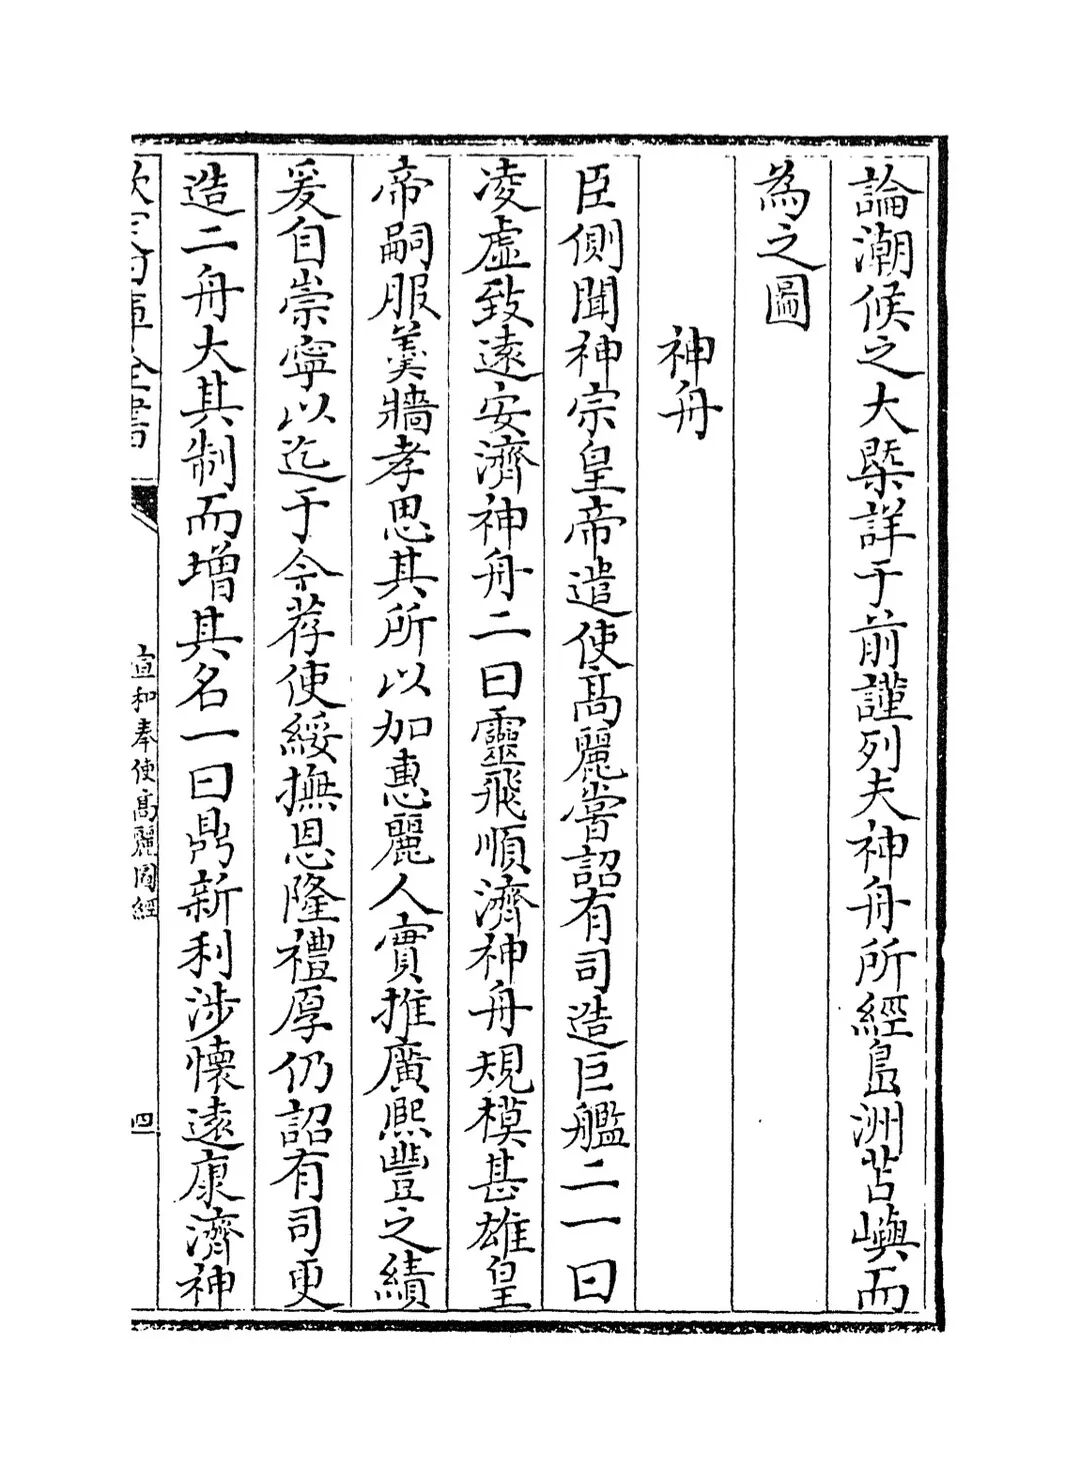 論潮候之大槩詳于前謹列夫神舟所經島洲苫嶼而
為之圖
神舟
臣側聞神宗皇帝遣使髙麗嘗詔有司造巨艦二一曰
凌虛致逺安濟神舟二曰靈飛順濟神舟規模甚雄皇
帝嗣服羮牆孝思其所以加惠麗人實推廣熙豐之績
爰自崇寧以迄于今荐使綏撫恩隆禮厚仍詔有司更
造二舟大其制而增其名一曰鼎新利涉懷逺康濟神
欽定四庫全書
宣和奉使髙麗圖經
四